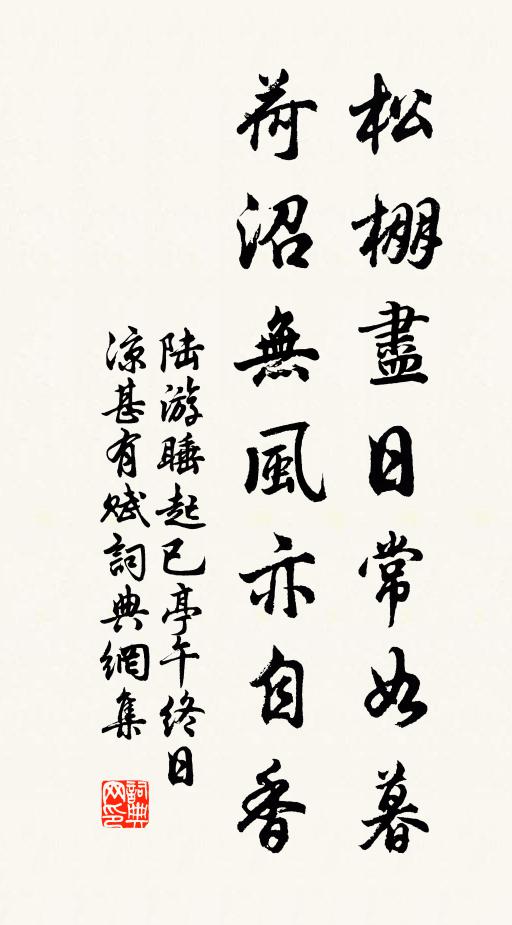 松棚盡日常如暮
荷沼無風亦自香
陆游睡起已亭午终日
凉甚有赋詞典網集
詞典
网印